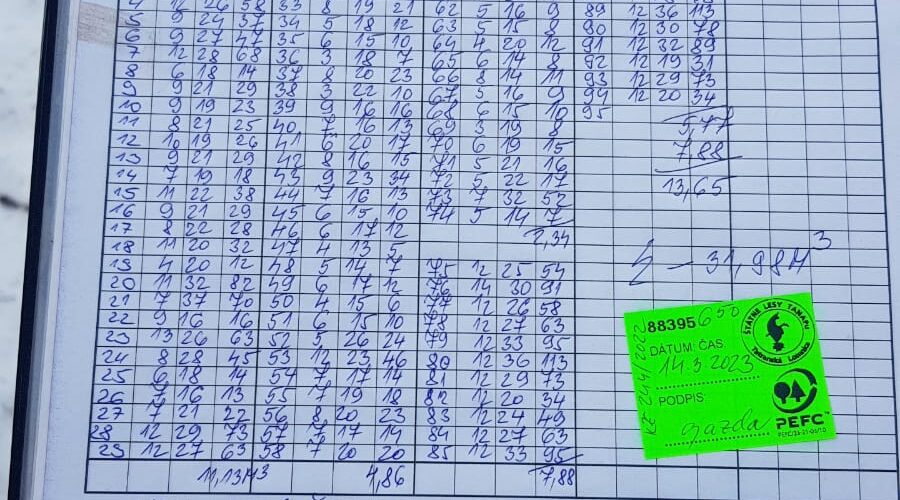 4 12 26 58 33 8 19 21 62 5 16 9 89 12 36 113
5 9 24 37 34 5 18 12 63 5 15 8 90 12 30 78
6 9 27 47 35 6 15 10 64 4 20 12 91 12 32 89
7 12 28 68 36 3 18 7 65 6 14 8 92 12 19 31
8 6 18 14 37 8 20 23 66 8 14 11 93 12 29 73
9 9 21 29 38 3 22 10 67 5 16 9 94 12 20 34
10 9 19 23 39 9 16 16 68 6 15 10 95
11 8 21 25 40 7 16 13 69 3 19 8 5,77
12 10 19 26 41 6 20 17 70 6 19 15 7,88
13 9 21 29 42 8 16 15 71 5 21 16
14 7 19 18 43 9 23 34 72 5 22 17 13,65
15 11 22 38 44 7 16 13 73 7 32 52
16 9 21 29 45 6 15 10 74 5 14 7
17 8 22 28 46 6 17 12 2,34
18 11 20 32 47 4 13 5
19 4 20 12 48 5 14 7 75 12 25 54
20 11 32 82 49 6 17 12 76 14 30 91
21 7 37 70 50 4 15 6 77 12 26 58
22 9 16 16 51 6 15 10 78 12 27 63
23 13 26 63 52 5 26 24 79 12 33 95
24 8 28 45 53 12 23 46 80 12 36 113
25 6 18 14 54 7 17 14 81 12 29 73
26 7 16 13 55 7 19 18 82 12 20 34
27 7 21 22 56 8 20 23 83 12 24 49
28 12 29 73 57 7 17 14 84 12 27 63
29 12 27 63 58 7 20 20 85 12 33 95
11,13M3 4,86 7,88
31,98M3
88395 650
ŠTÁTNE LESY TANAPU
Tatranská Lomnica
DÁTUM: ČAS:
14.3.2023
PODPIS:
gazda
PEFC™